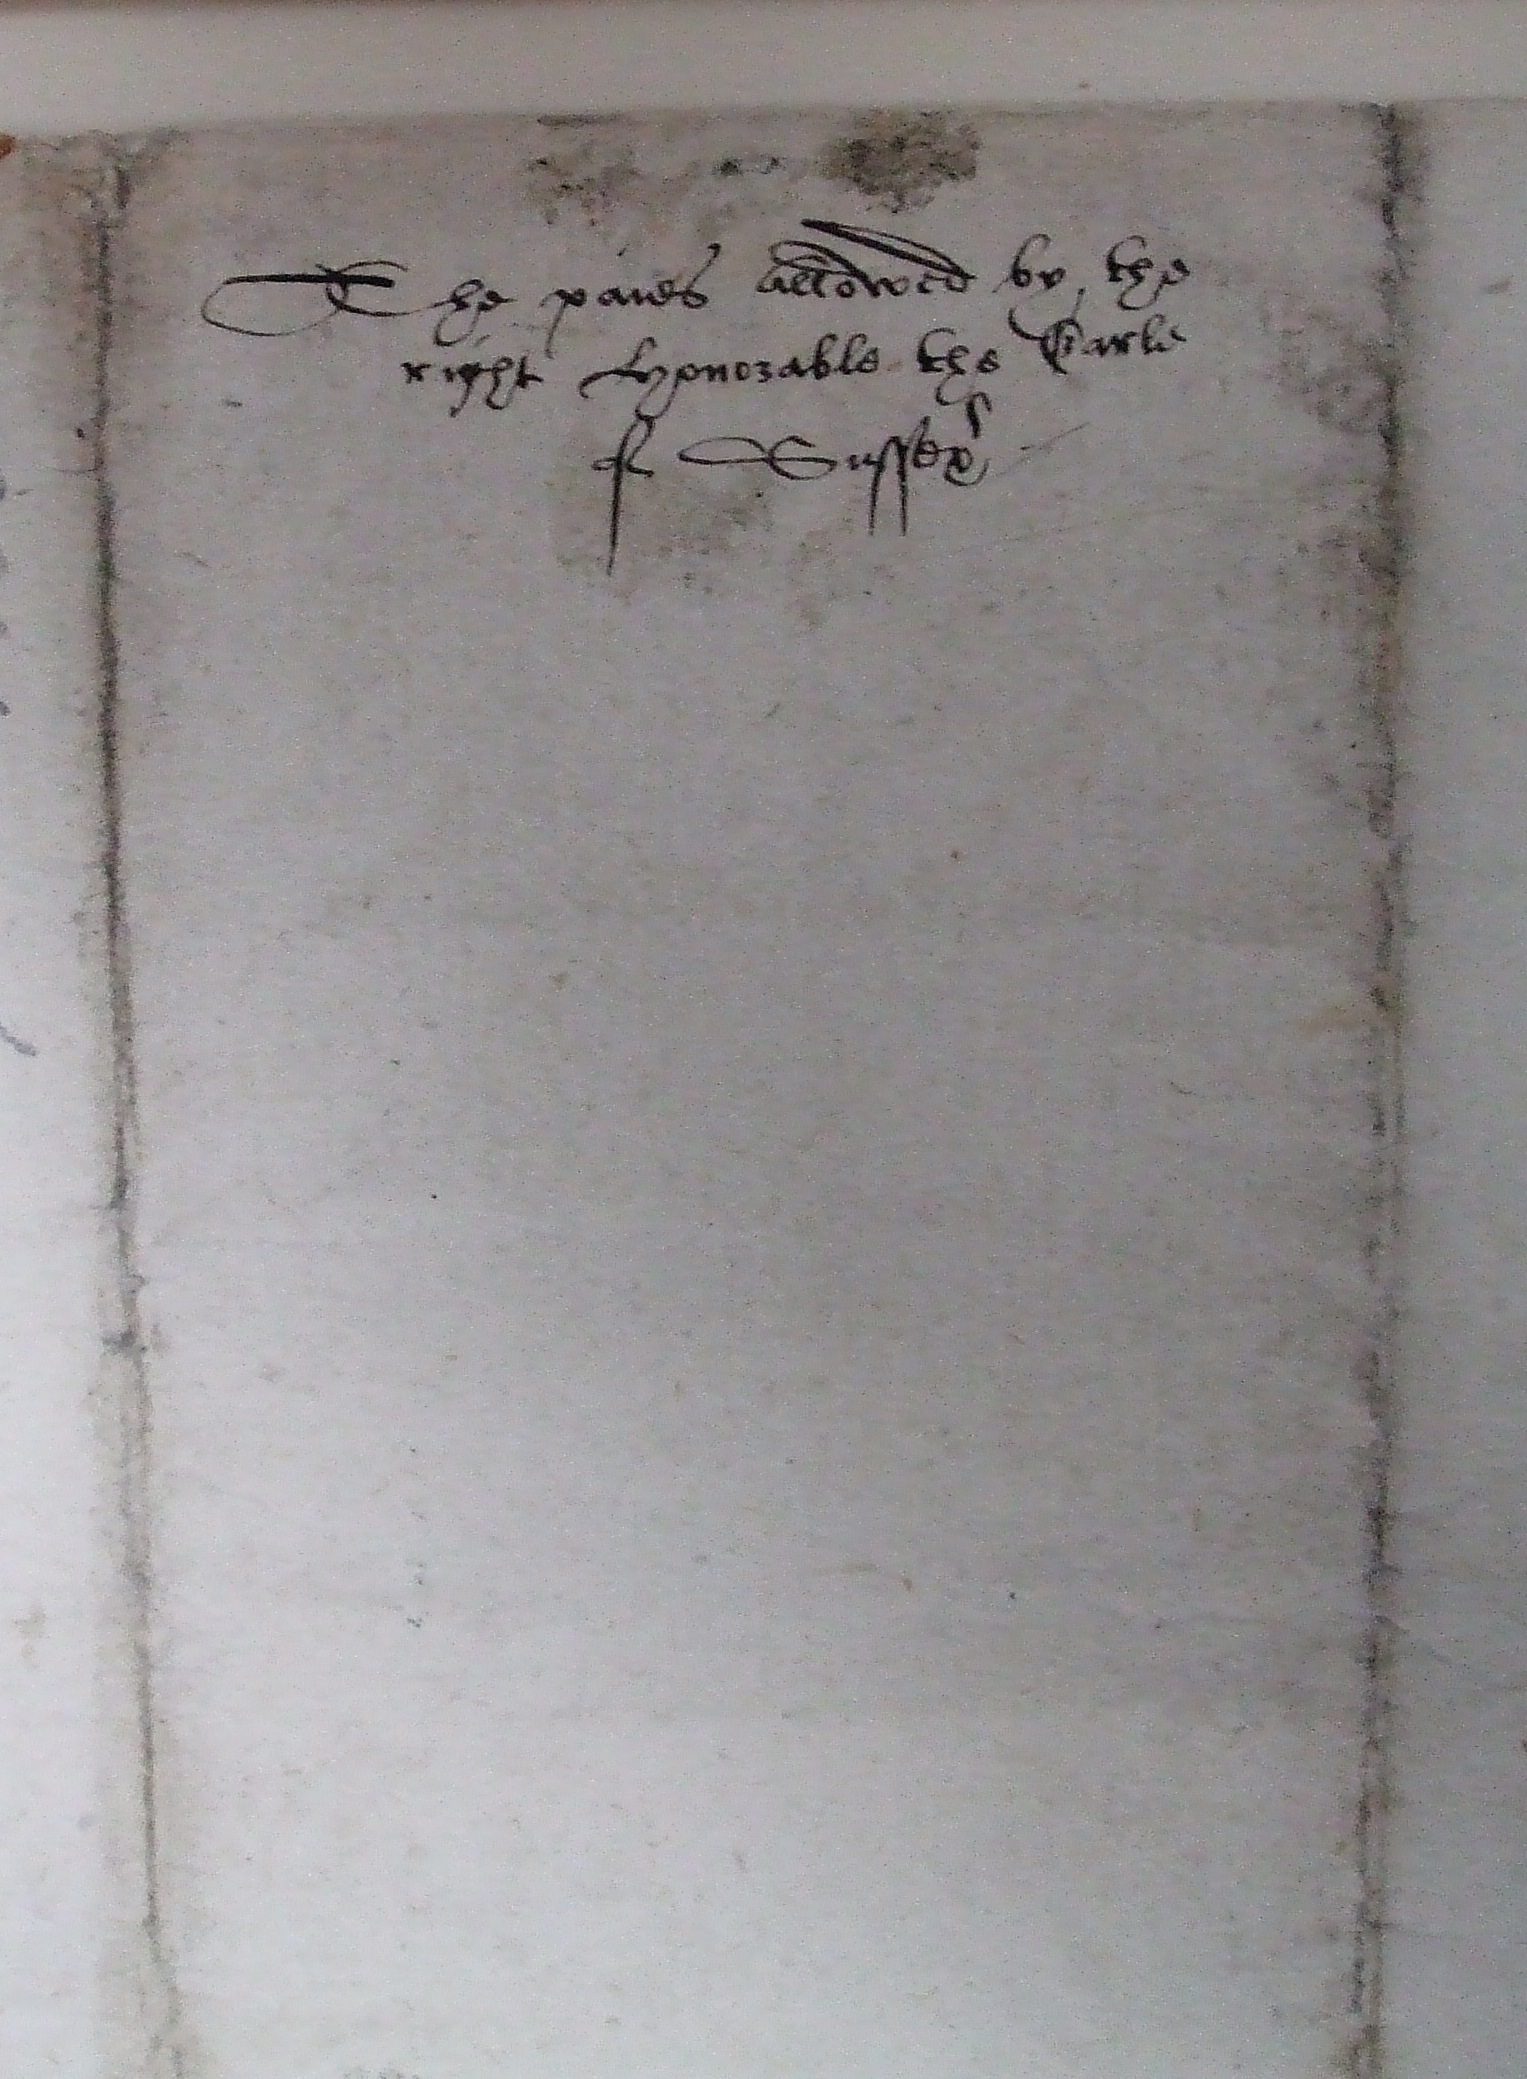 The paies allowed by the
right honorable the Earle
of Sussex